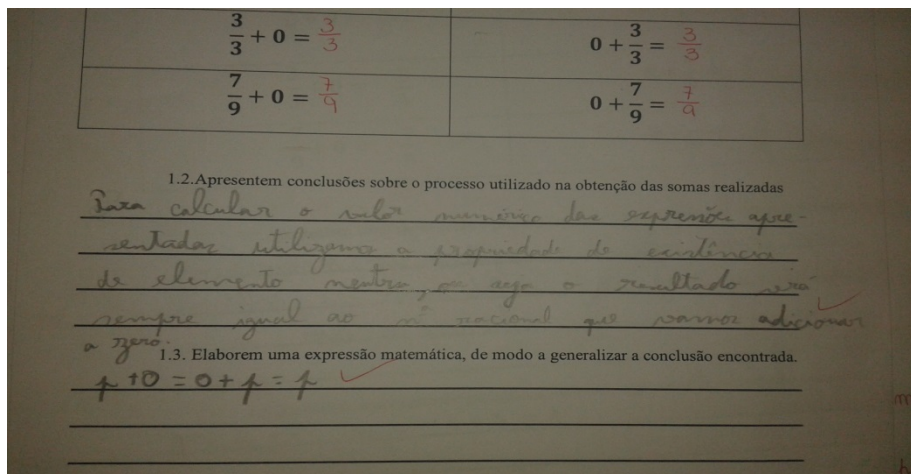 3/3 + 0 = 3/3
0 + 3/3 = 3/3
7/9 + 0 = 7/9
0 + 7/9 = 7/9
1.2.Apresentem conclusões sobre o processo utilizado na obtenção das somas realizadas
Para calcular o valor numérico das expressões apre-
sentadas utilizamos a propriedade de existência
de elemento neutro, ou seja o resultado será
sempre igual ao nº racional que vamos adicionar
a zero.
1.3. Elaborem uma expressão matemática, de modo a generalizar a conclusão encontrada.
p + 0 = 0 + p = p